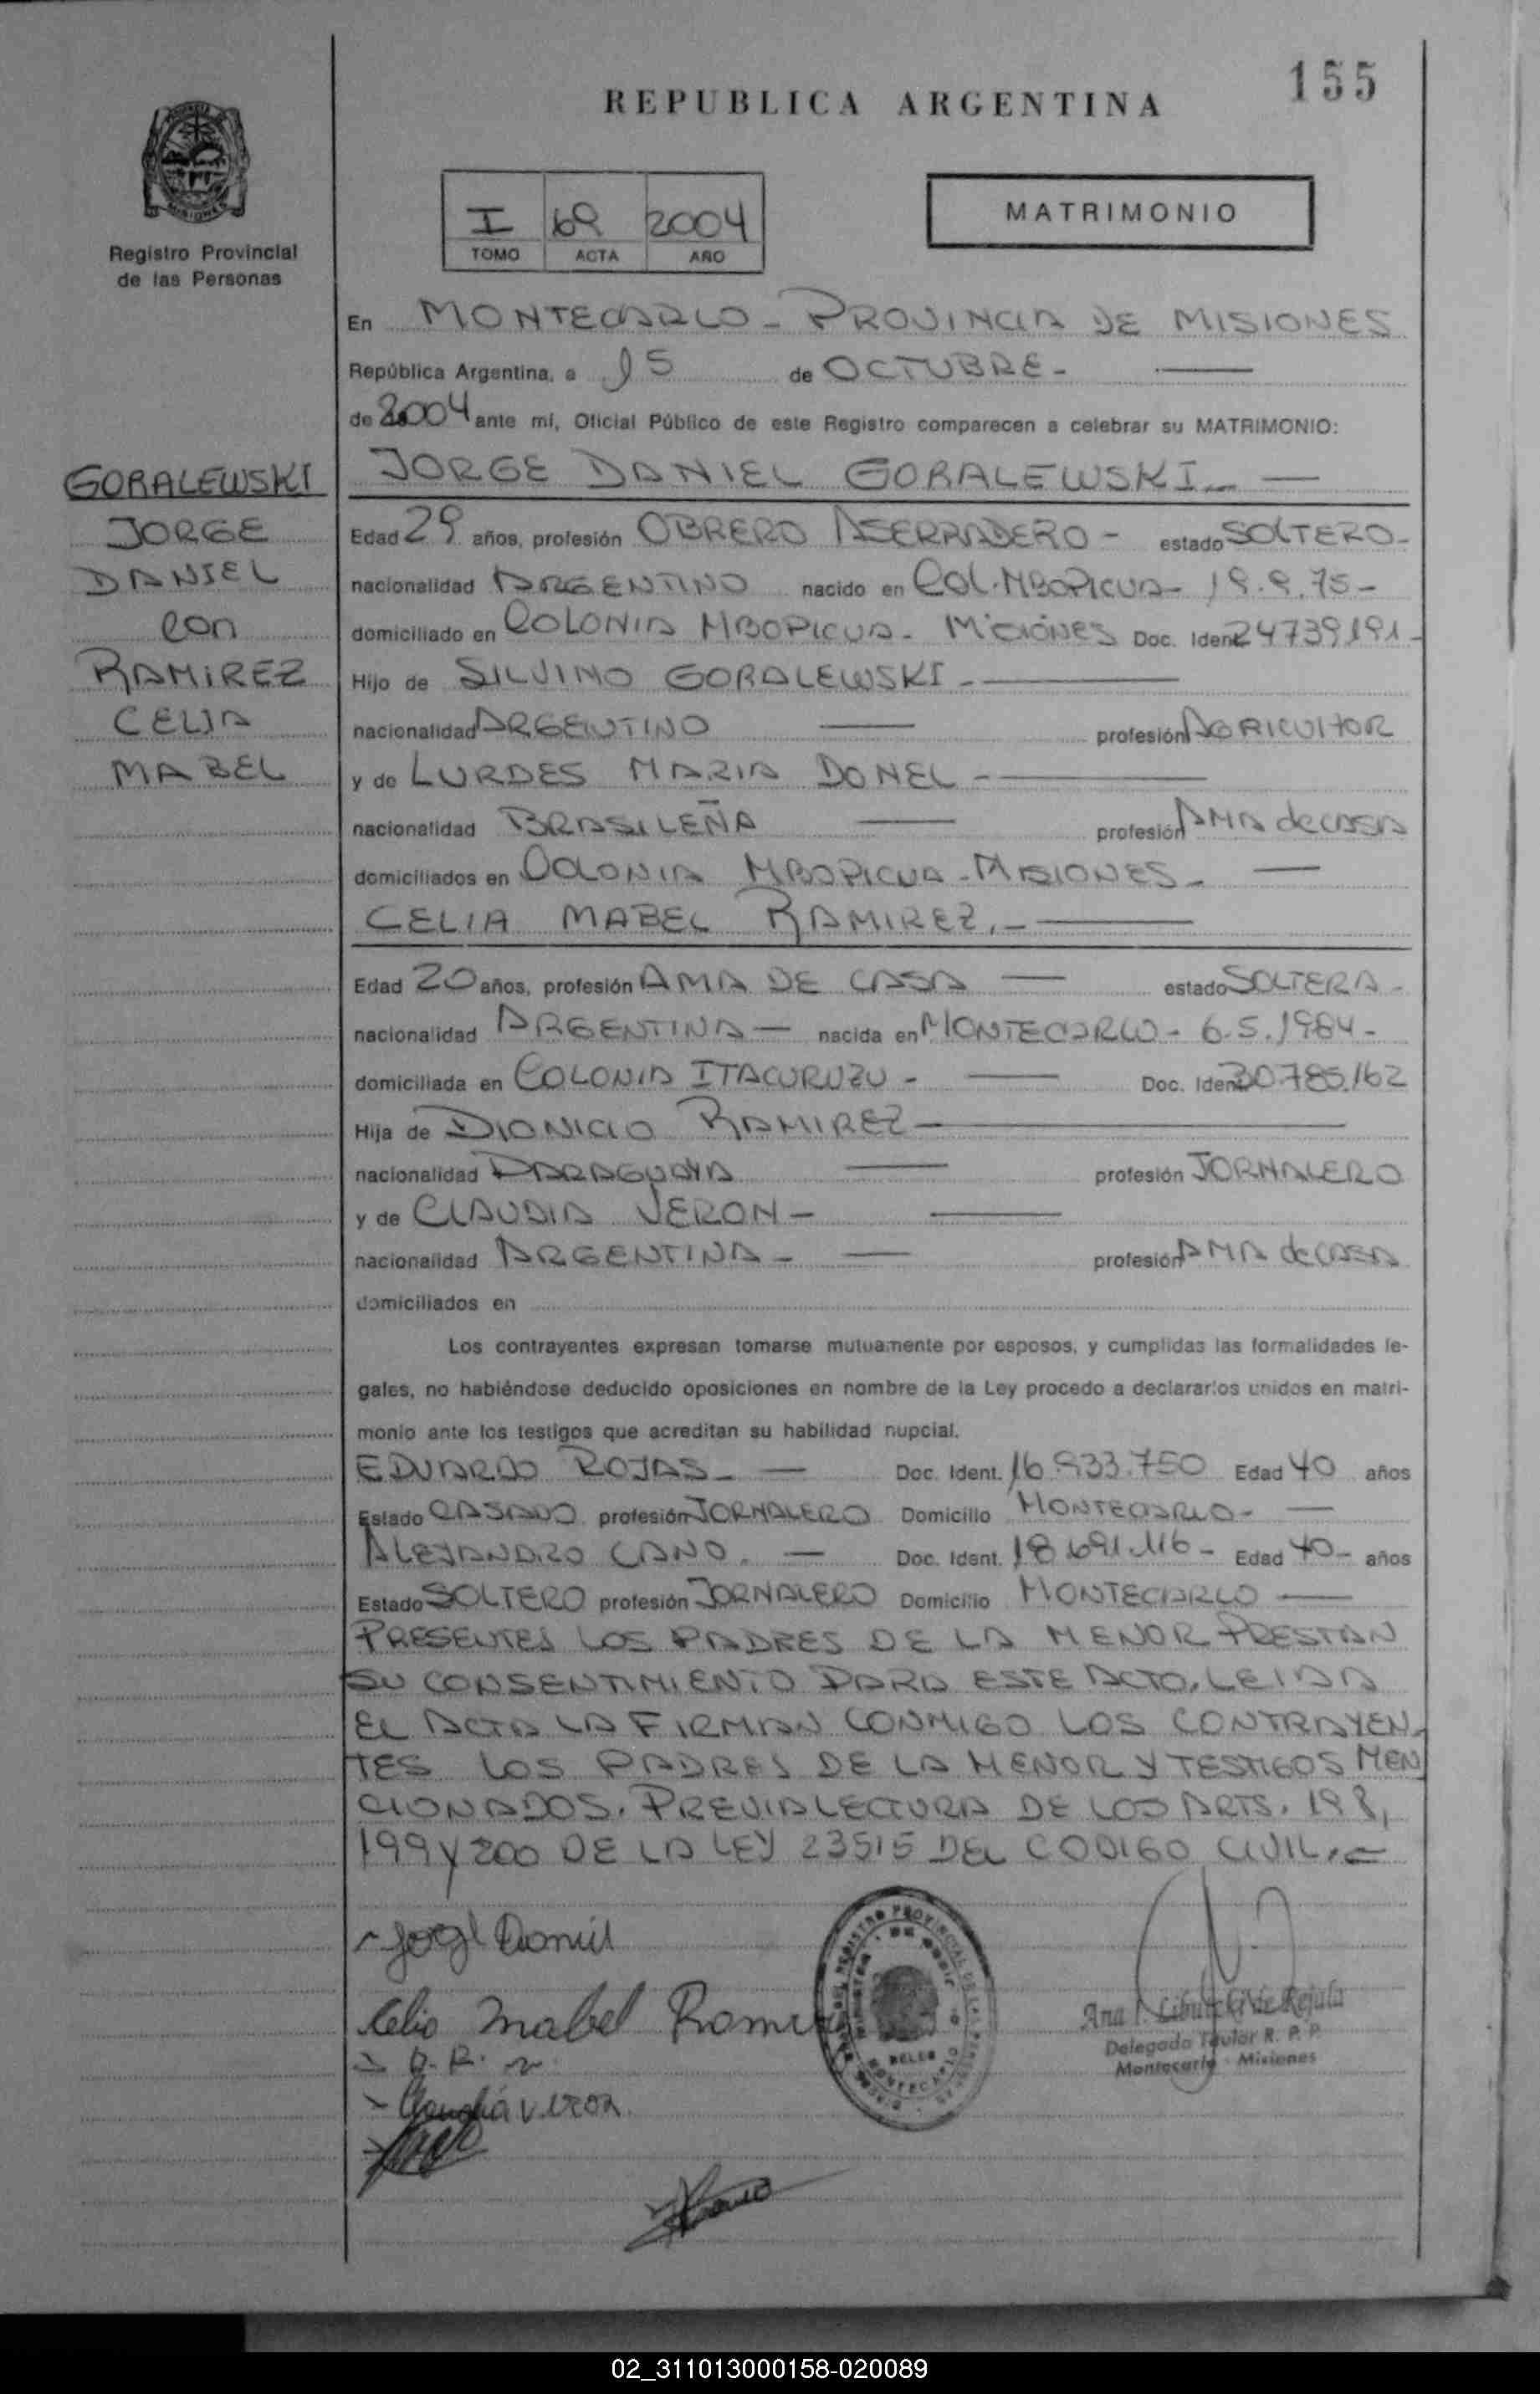 155
REPUBLICA ARGENTINA
MATRIMONIO
I 69 2004
TOMO ACTA AÑO
Registro Provincial
de las Personas
GORALEWSKI
JORGE
DANIEL
con
RAMIREZ
CELIA
MABEL
En MONTECARLO - PROVINCIA DE MISIONES
República Argentina, a 15 de OCTUBRE -
de 2004 ante mí, Oficial Público de este Registro comparecen a celebrar su MATRIMONIO:
JORGE DANIEL GORALEWSKI -
Edad 29 años, profesión OBRERO ASERRADERO - estado SOLTERO -
nacionalidad ARGENTINO nacido en COL. MBOPICUA - 19.9.75 -
domiciliado en COLONIA MBOPICUA - Misiones Doc. Ident. 24739191 -
Hijo de SILVINO GORALEWSKI -
nacionalidad ARGENTINO profesión AGRICULTOR
y de LURDES MARIA DONEL -
nacionalidad BRASILEÑA profesión AMA de CASA
domiciliados en COLONIA MBOPICUA - MISIONES -
CELIA MABEL RAMIREZ. -
Edad 20 años, profesión AMA DE CASA estado SOLTERA -
nacionalidad ARGENTINA - nacida en MONTECARLO - 6.5.1984 -
domiciliada en COLONIA ITACURUZU - Doc. Ident. 30.785.162
Hija de DIONICIO RAMIREZ -
nacionalidad PARAGUAYA profesión JORNALERO
y de CLAUDIA VERON -
nacionalidad ARGENTINA - profesión AMA de CASA
domiciliados en
Los contrayentes expresan tomarse mutuamente por esposos, y cumplidas las formalidades le-
gales, no habiéndose deducido oposiciones en nombre de la Ley procedo a declararlos unidos en matri-
monio ante los testigos que acreditan su habilidad nupcial.
EDUARDO ROJAS - Doc. Ident. 16.933.750 Edad 40 años
Estado CASADO profesión JORNALERO Domicilio MONTECARLO -
ALEJANDRO CANO. - Doc. Ident. 18.691.116 - Edad 40 - años
Estado SOLTERO profesión JORNALERO Domicilio MONTECARLO
PRESENTES LOS PADRES DE LA MENOR PRESTAN
SU CONSENTIMIENTO PARA ESTE ACTO. LEIDA
EL ACTA LA FIRMAN CONMIGO LOS CONTRAYEN-
TES LOS PADRES DE LA MENOR Y TESTIGOS MEN
CIONADOS. PREVIA LECTURA DE LOS ARTS. 198,
199 Y 200 DE LA LEY 23515 DEL CODIGO CIVIL. =
Jorge Daniel
Celia Mabel Ramirez
D. R.
Claudia Veron
MONTECARLO
Delegada Titular R. P. P.
Montecarlo - Misiones
02_311013000158-020089